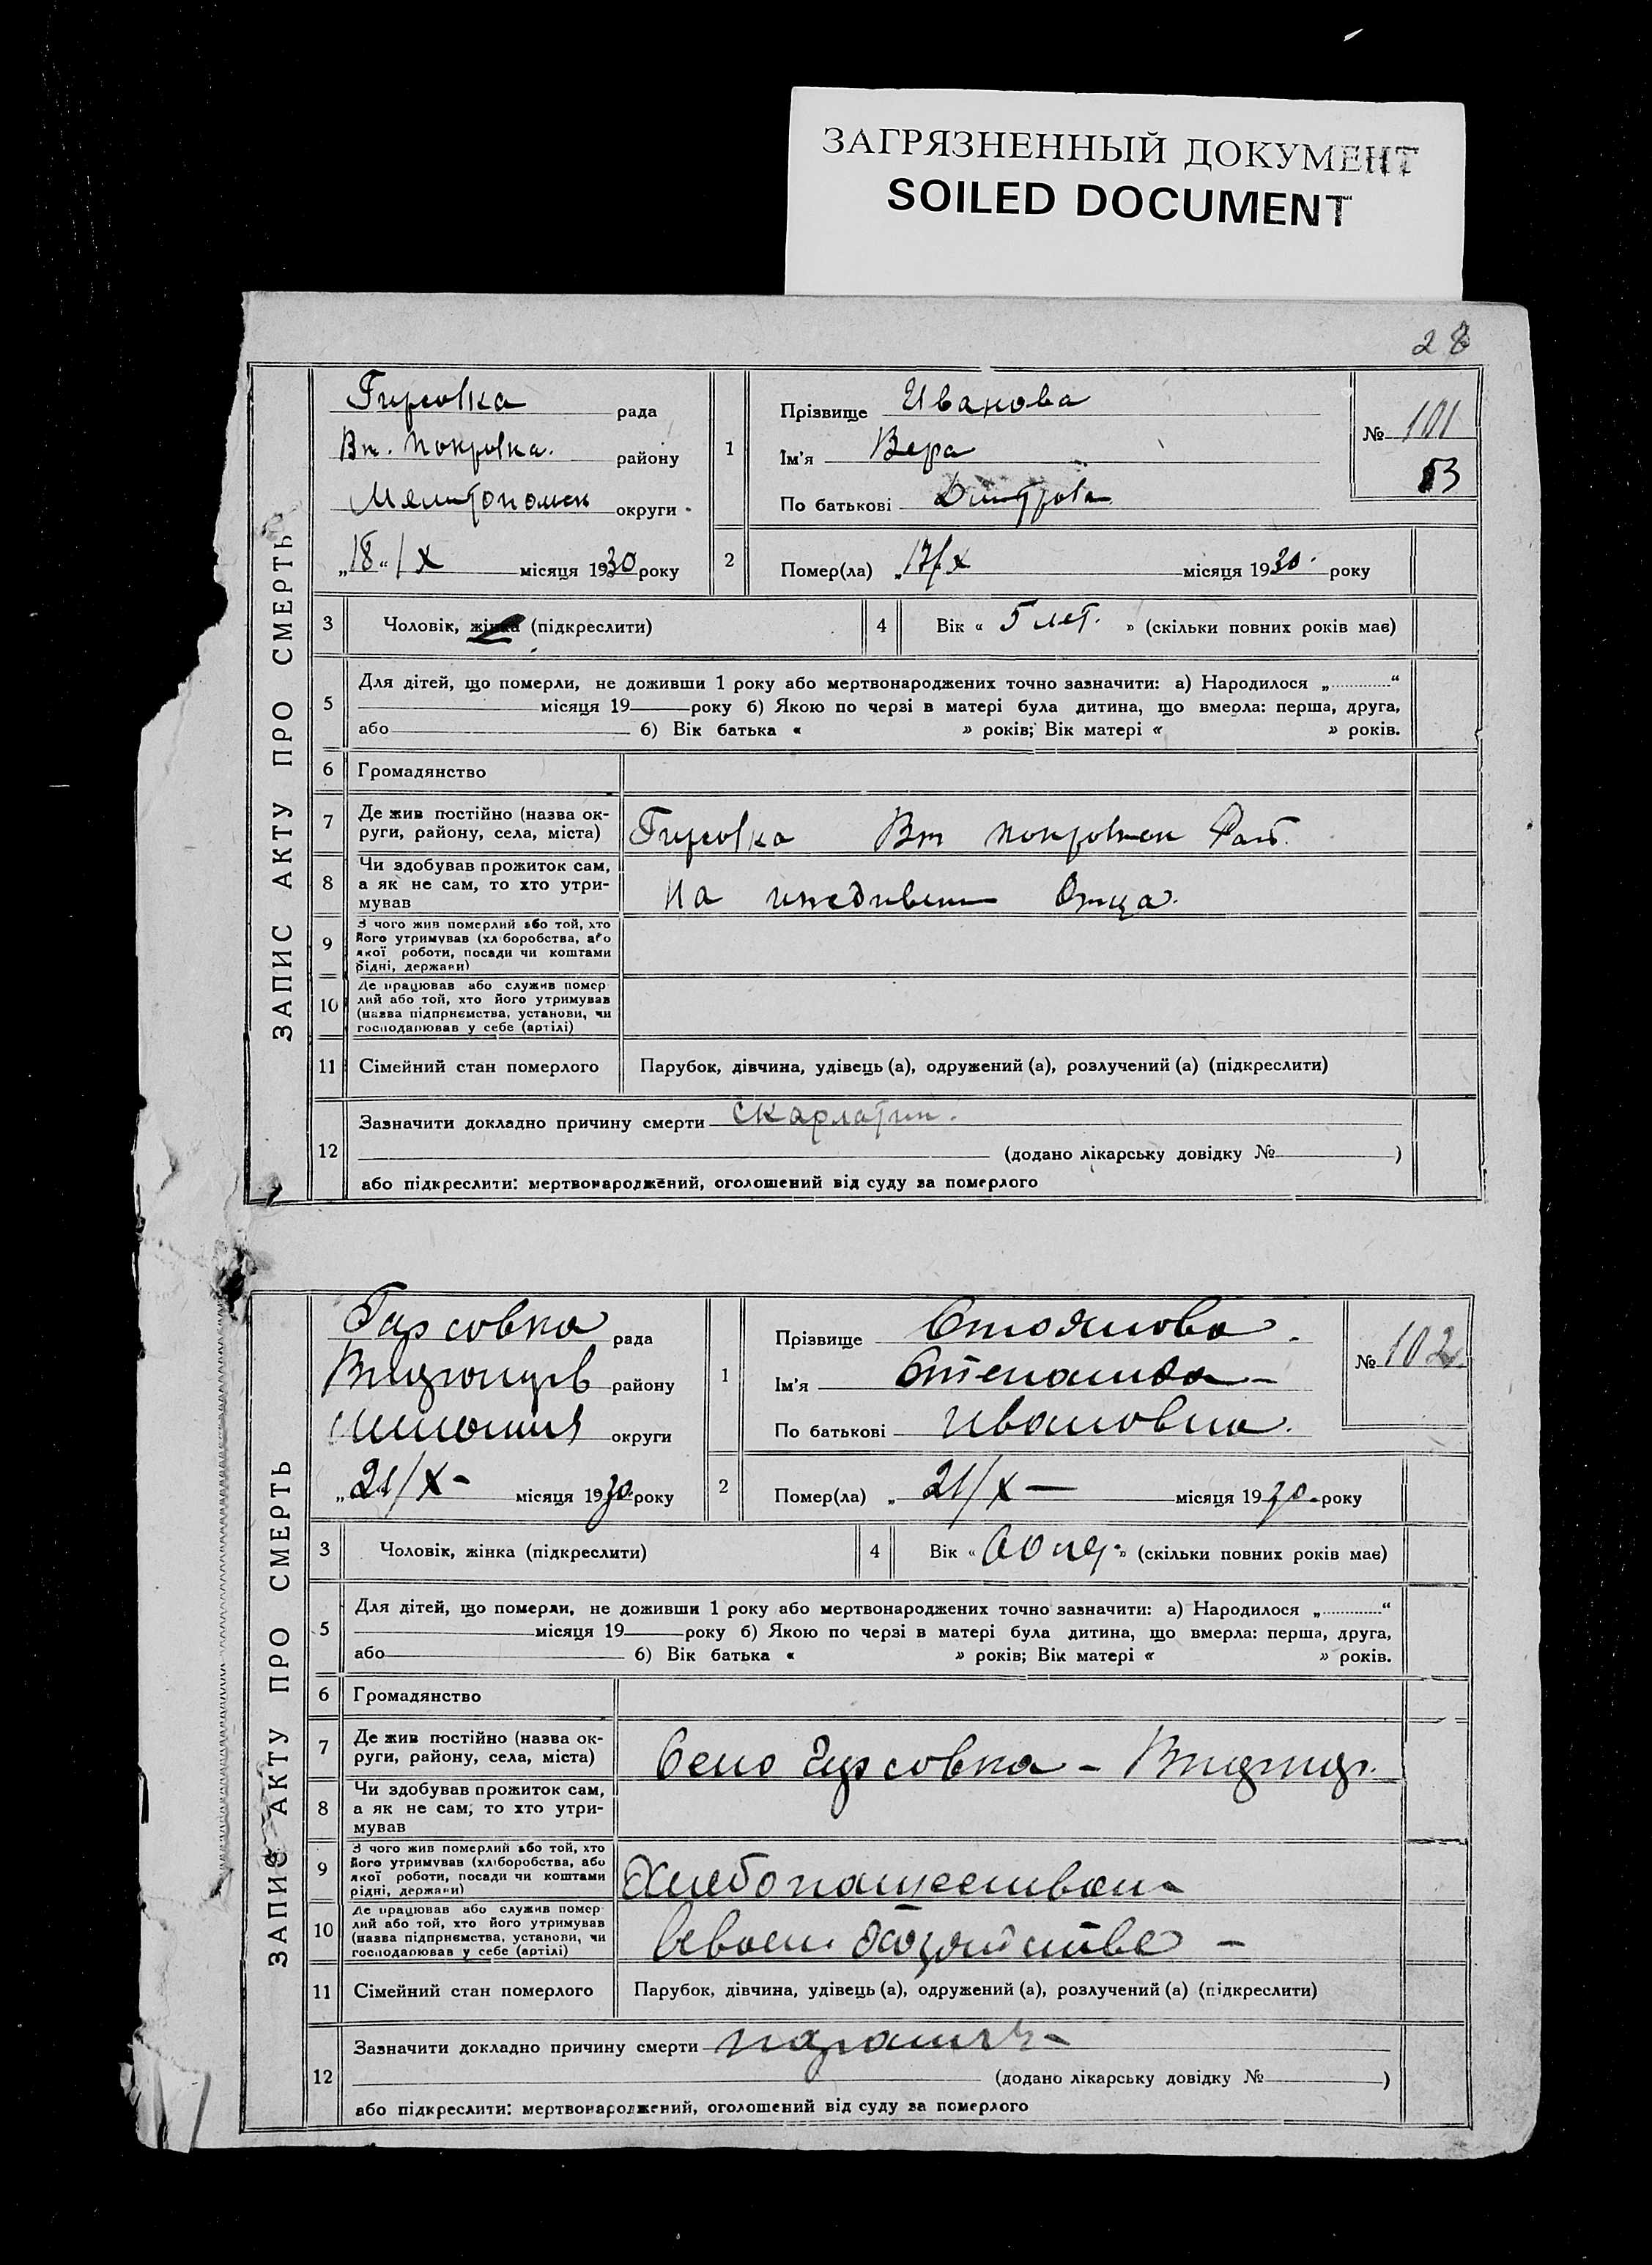 ЗАГРЯЗНЕННЫЙ ДОКУМЕНТ
SOILED DOCUMENT
28
ЗАПИС АКТУ ПРО СМЕРТЬ
Гирсовка рада
Вт. Покровка. району
округи
„18“ / X місяця 1930 року
1
Прізвище Иванова
Ім'я Вера
По батькові
№ 101
53
2
Помер(ла) „17/X місяця 1930 року
3 Чоловік, жінка (підкреслити)
4 Вік « 5 лет. » (скільки повних років має)
5 Для дітей, що померли, не доживши 1 року або мертвонароджених точно зазначити: а) Народилося „ “
місяця 19 року б) Якою по черзі в матері була дитина, що вмерла: перша, друга,
або б) Вік батька « » років; Вік матері « » років.
6 Громадянство
7 Де жив постійно (назва ок-
руги, району, села, міста)
Гирсовка Вт Покровск
8 Чи здобував прожиток сам,
а як не сам, то хто утри-
мував
На иждивении Отца.
9 З чого жив померлий або той, хто
його утримував (хліборобства, або
якої роботи, посади чи коштами
рідні, держави)
10 Де працював або служив помер-
лий або той, хто його утримував
(назва підприємства, установи, чи
господарював у себе (артілі)
11 Сімейний стан померлого
Парубок, дівчина, удівець (а), одружений (а), розлучений (а) (підкреслити)
12 Зазначити докладно причину смерти скарлатин.
(додано лікарську довідку № )
або підкреслити: мертвонароджений, оголошений від суду за померлого
ЗАПИС АКТУ ПРО СМЕРТЬ
Гирсовка рада
району
округи
„21/X - місяця 1930 року
1
Прізвище Стоянова.
Ім'я Степанида
По батькові Ивановна.
№ 102
2
Помер(ла) „ 21/X — місяця 1930. року
3 Чоловік, жінка (підкреслити)
4 Вік « » (скільки повних років має)
5 Для дітей, що померли, не доживши 1 року або мертвонароджених точно зазначити: а) Народилося „ “
місяця 19 року б) Якою по черзі в матері була дитина, що вмерла: перша, друга,
або б) Вік батька « » років; Вік матері « » років.
6 Громадянство
7 Де жив постійно (назва ок-
руги, району, села, міста)
Село Гирсовка -
8 Чи здобував прожиток сам,
а як не сам, то хто утри-
мував
9 З чого жив померлий або той, хто
його утримував (хліборобства, або
якої роботи, посади чи коштами
рідні, держави)
Хлебопашеством
10 Де працював або служив помер-
лий або той, хто його утримував
(назва підприємства, установи, чи
господарював у себе (артілі)
11 Сімейний стан померлого
Парубок, дівчина, удівець (а), одружений (а), розлучений (а) (підкреслити)
12 Зазначити докладно причину смерти
(додано лікарську довідку № )
або підкреслити: мертвонароджений, оголошений від суду за померлого